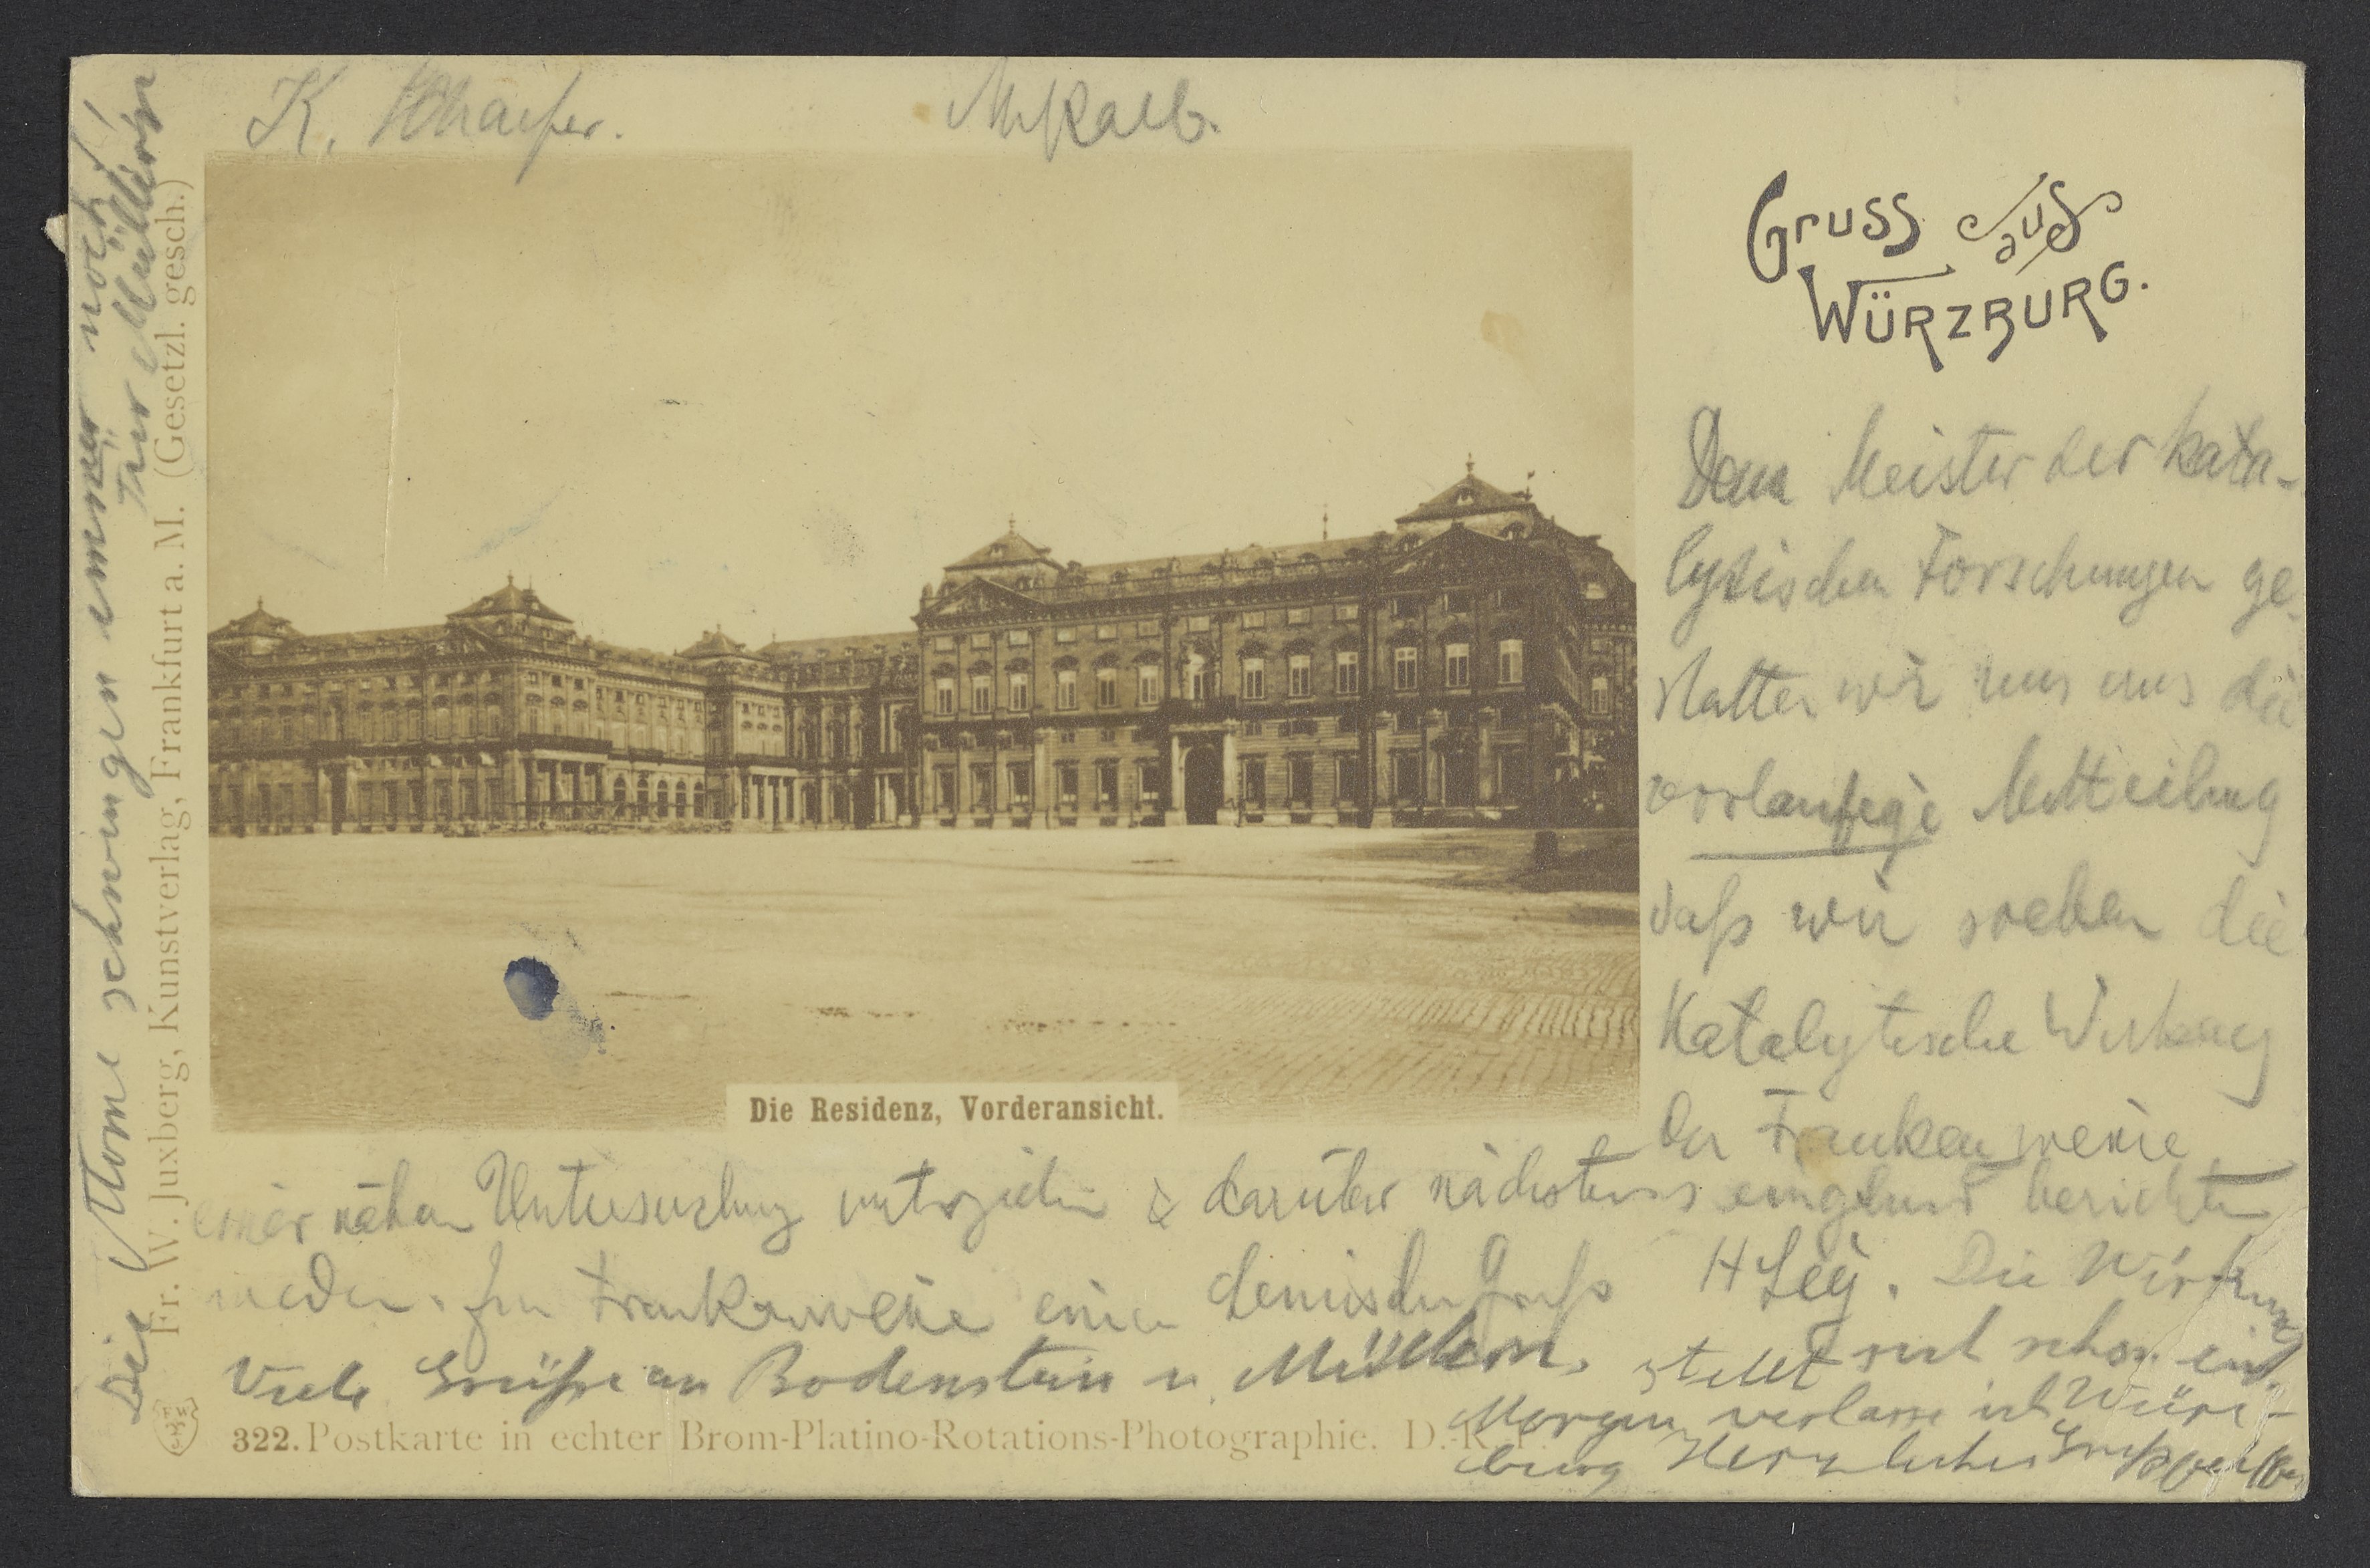 K. Schaefer.
Gruss aus
Würzburg.
Dem Meister der kata-
lytischen Forschungen ge-
statten wir uns uns die
vorläufige Mitteilung
daß wir soeben die
Katalytische Wirkung
der Frankenweine
einer nähern Untersuchung unterziehen & darüber nächstens eingehend berichten
werden. Im Frankenweine einen chemischen Gruß H Ley. Die Wirkung
stellt sich schon ein.
Viele Grüße an Bodenstein u.
Morgen verlasse ich Würz-
burg Herzlichen Gruß
Die Atome schwingen immer noch!
Die Residenz, Vorderansicht.
Fr. W. Juxberg, Kunstverlag, Frankfurt a. M. (Gesetzl. gesch.)
322. Postkarte in echter Brom-Platino-Rotations-Photographie. D.-R.-P.